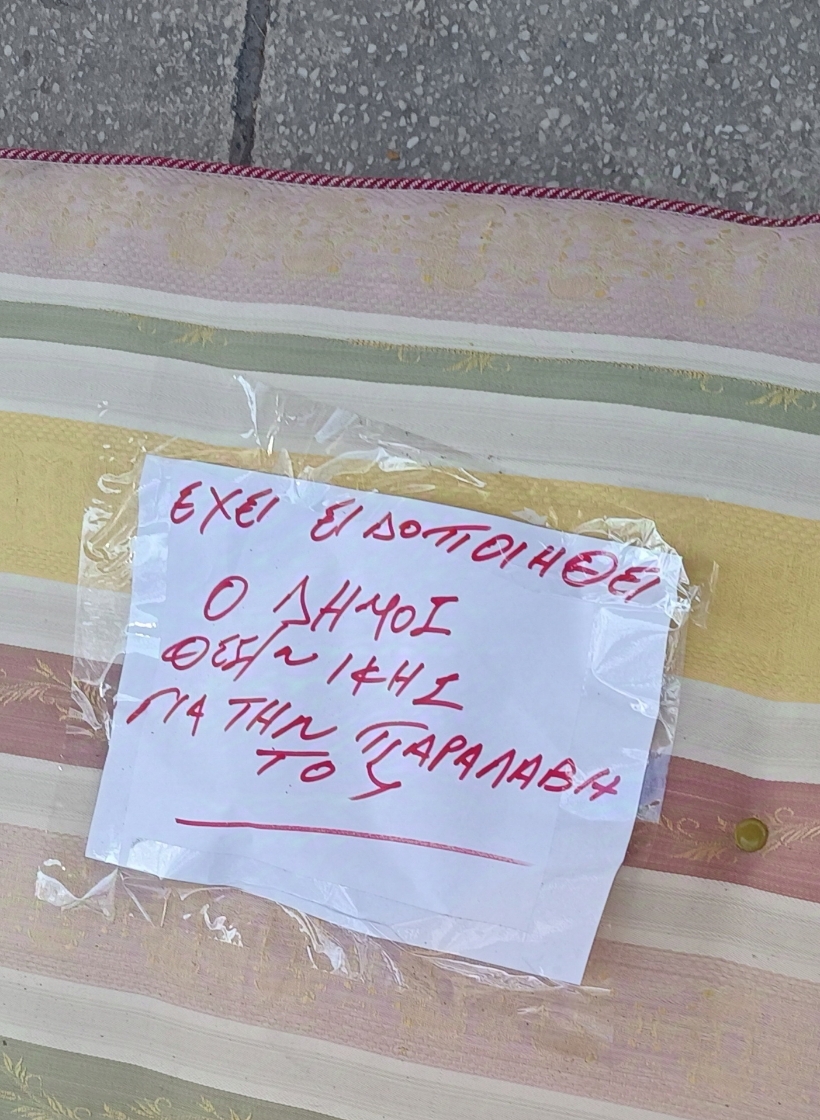 ΕΧΕΙ ΕΙΔΟΠΟΙΗΘΕΙ
Ο ΔΗΜΟΣ
ΘΕΣ/ΝΙΚΗΣ
ΓΙΑ ΤΗΝ ΠΑΡΑΛΑΒΗ
ΤΟΥ